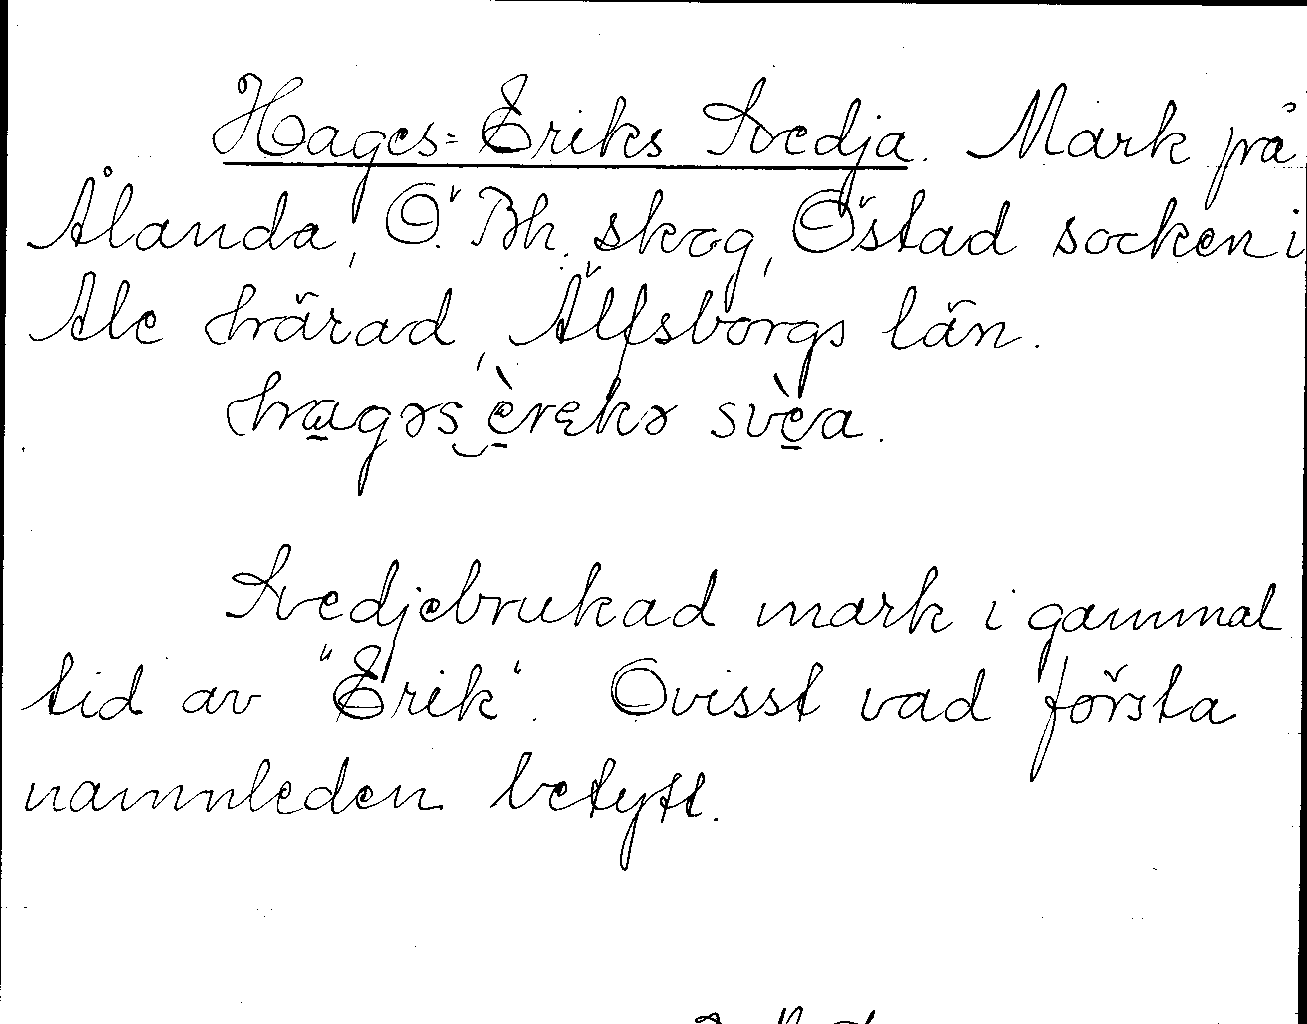 Hages-Eriks Svedja. Mark på
Ålanda, Ö. Bh. skog, Östad socken i
Ale härad, Älfsborgs län.
hagəs èrɛkə svèa.
Svedjebrukad mark i gammal
tid av "Erik". Ovisst vad första
namnleden betytt.